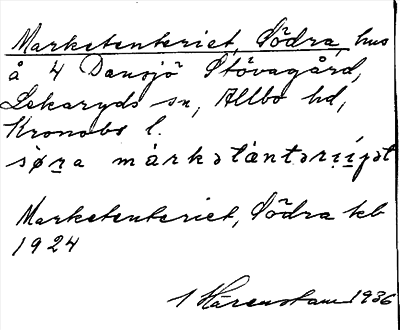 Marketenteriet, Södra, hus
å 4 Dansjö Stövagård,
Lekaryds sn, Allbo hd,
Kronobs l.
søra márkətàntərijət
Marketenteriet, Södra kb
1924
1 Härenstam 1936